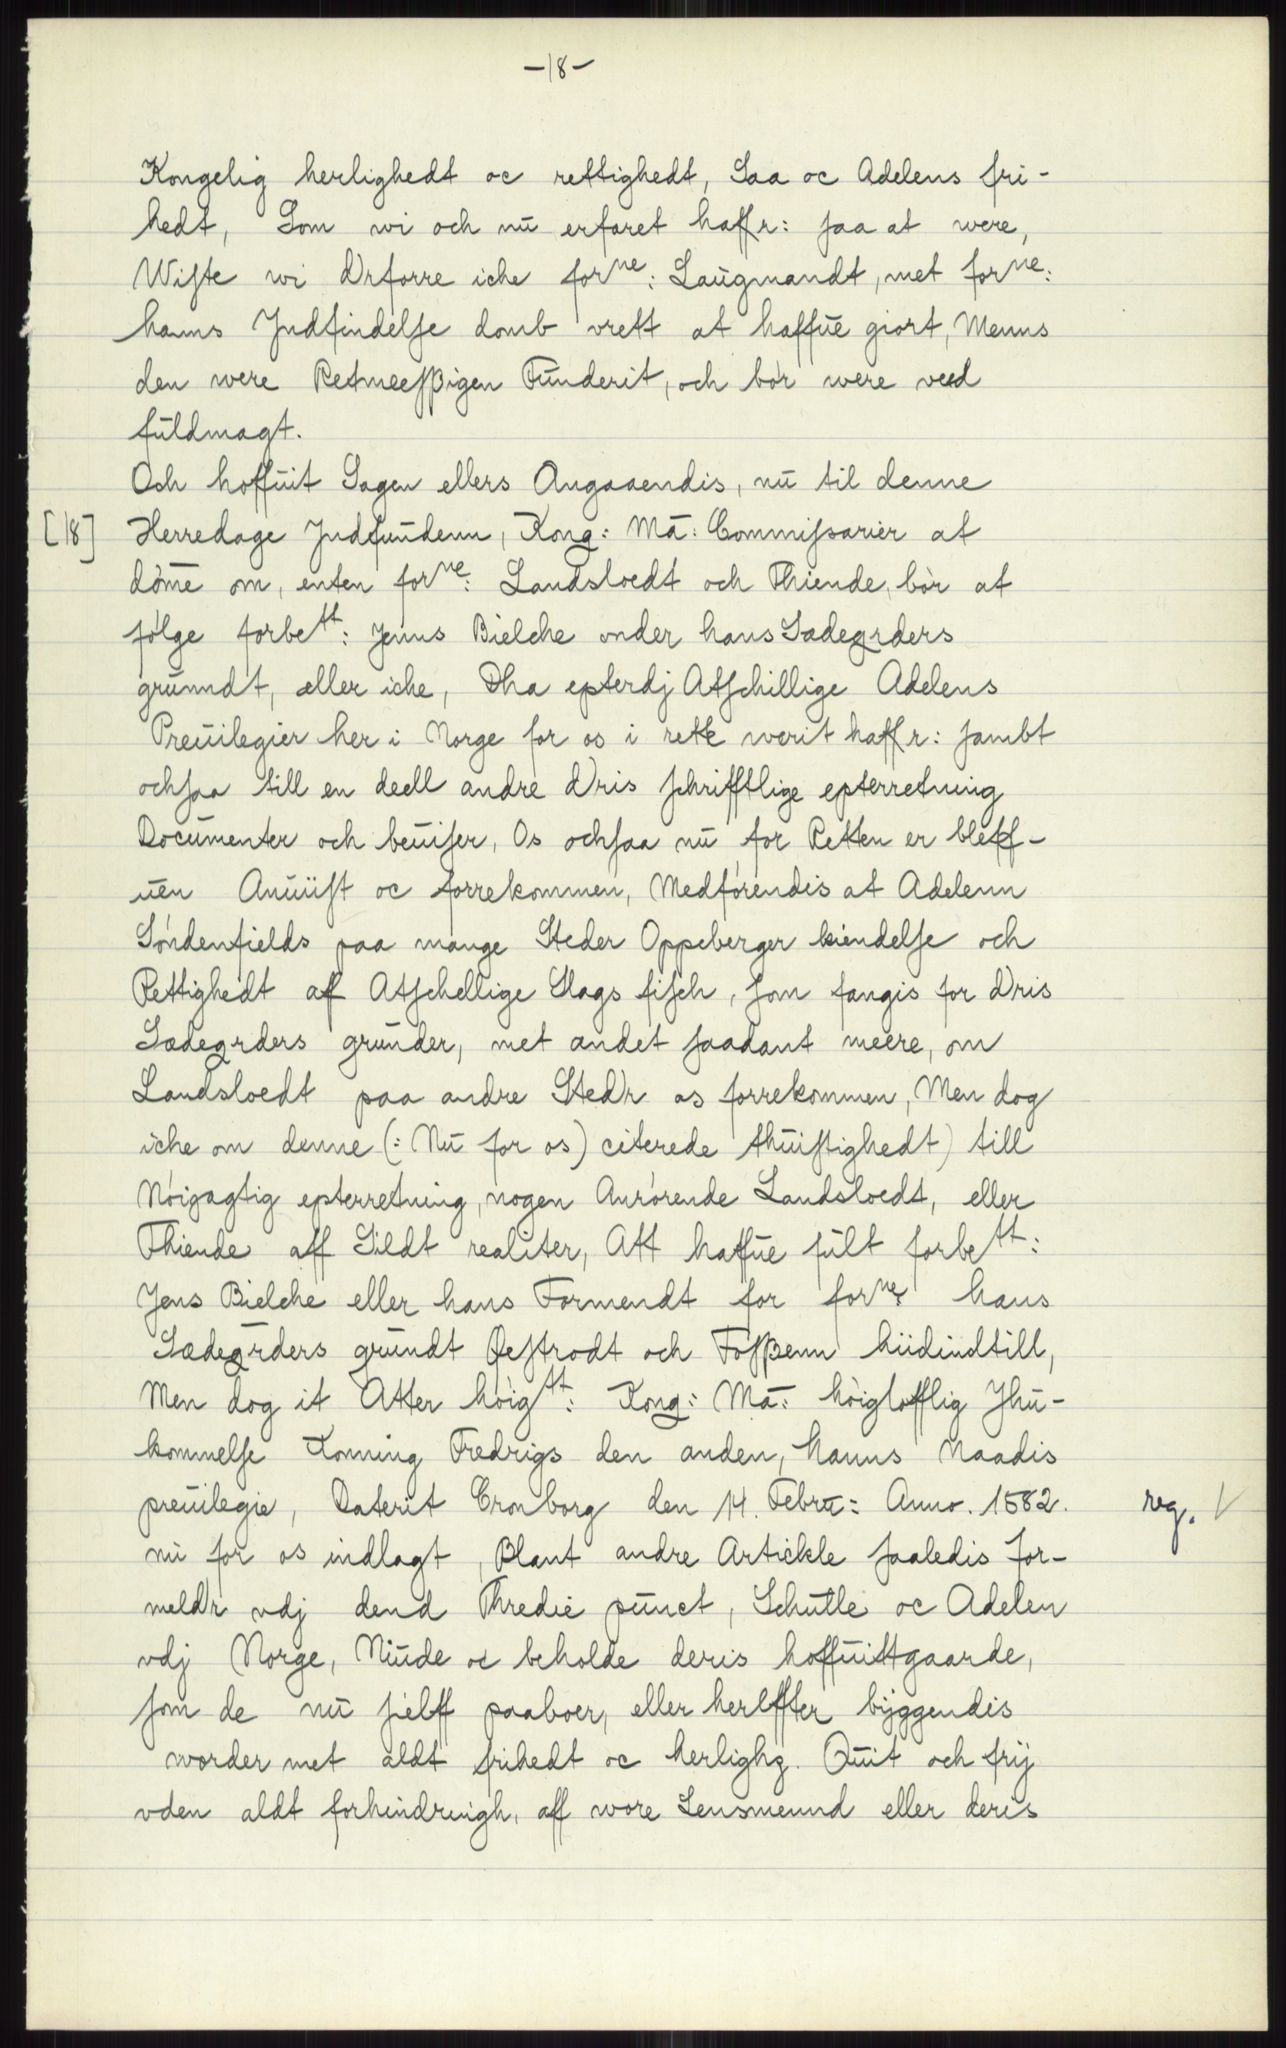 -18-
Kongelig herlighedt oc rettighedt, Saa oc Adelens fri-
hedt, Som wi och nū erfaret haffr: saa at were,
Wiste wi Drforre iche forne: Laūgmandt, met forne:
hanns Jndfindelse domb vrett at haffūe giort, Menns
den were Retmeessigen Fūnderit, och bór were ved
fūldmagt.
Och hoffūit Sagen ellers Angaaendis, nū til denne
[18] Herredage Jndfūndenn, Kong: Mā: Commissarier at
dóme om, enten forne: Landsloedt och Thiende, bór at
fólge forbett: Jenns Bielche vnder hans Sædegrders
grūnndt, eller iche, Dha epterdj Atschillige Adelens
Preūilegier her i Norge for os i rette werit haffr: sambt
ochsaa till en deell andre Dris schrifftlige epterretning
Documenter och beūiser, Os ochsaa nū for Retten er bleff-
ūen Anūist oc forrekommen, Medfórendis at Adelenn
Sóndenfields paa mange Steder Oppeberger kiendelse och
Rettighedt aff Atschellige Slags fisch, som fangis for Dris
Sædegrders grūnder, met andet saadant meere, om
Landsloedt paa andre Stedr os forrekommen, Men dog
iche om denne (: Nū for os) citerede thūistighedt) till
Nóigagtig epterretning, nogen Anrórende Landsloedt, eller
Thiende aff Sildt realiter, Att haffūe fūlt forbett:
Jens Bielche eller hans Formendt for forne hans
Sædegrders grūndt Østrodt och Fossenn hiidindtill,
Men dog it Atter hóigtt: Kong: Mā: hóiglofflig Jhū-
kommelse Konning Fredrigs den anden, Hanns Naadis
preūilegie, Daterit Cronborg den 14. Febrū: Anno. 1582. reg. V
nū for os indlagt, Blant andre Artickle saaledis for-
meldr vdj dend Thredie pūnct, Schūlle oc Adelen
vdj Norge, Niūde oc beholde deris hoffūittgaarde,
som de nū sielff paaboer, eller herefter byggendis
worder met aldt frihedt oc herlighz. Qūit och frij
vden aldt forhindringh, aff wore Lensmennd eller deris